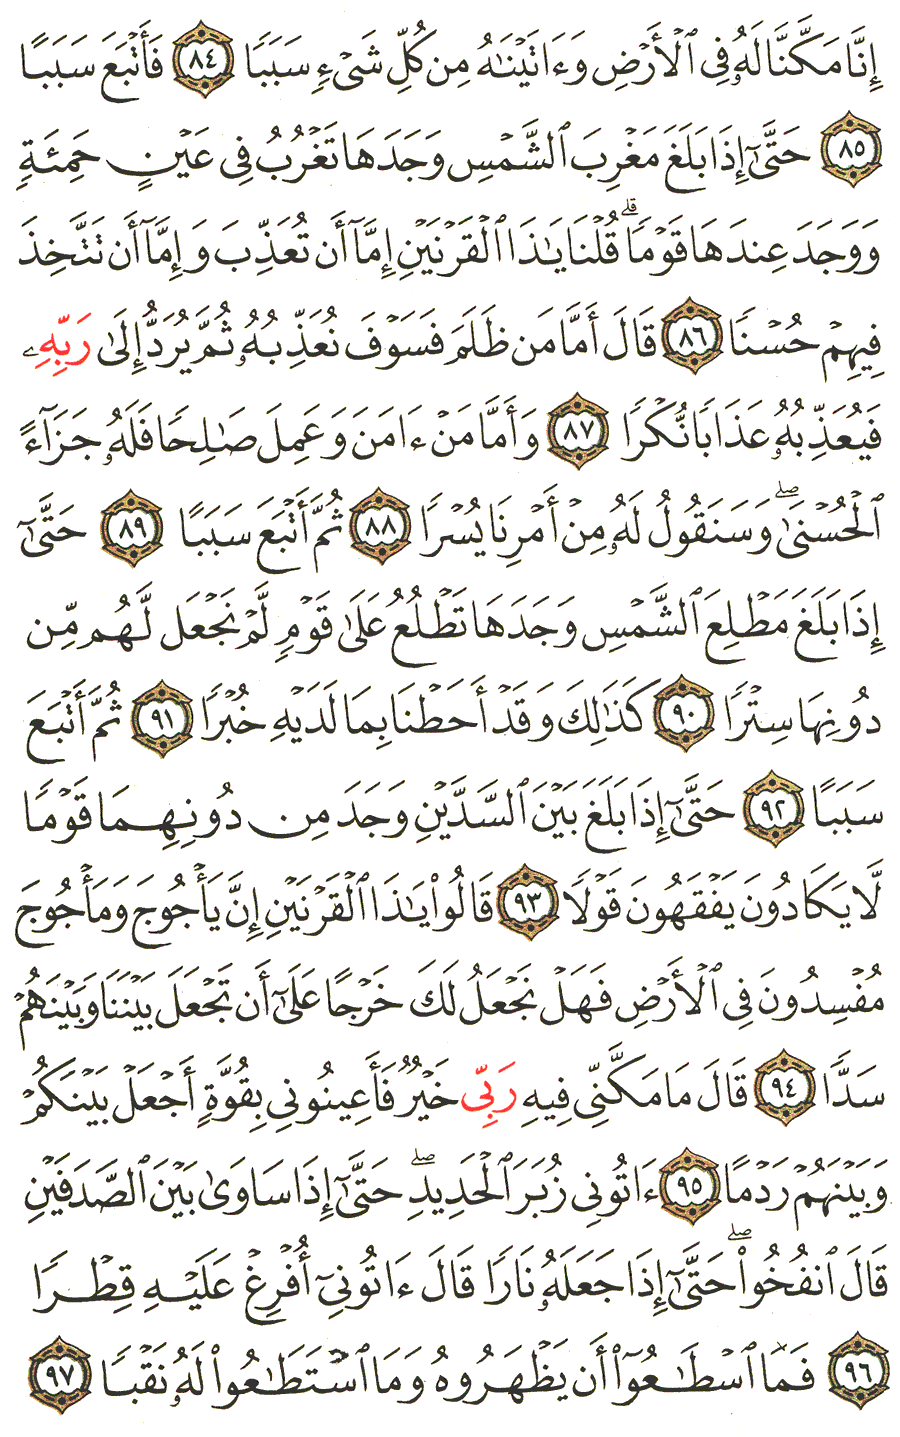 إِنَّا مَكَّنَّا لَهُۥ فِى ٱلْأَرْضِ وَءَاتَيْنَٰهُ مِن كُلِّ شَىْءٍ سَبَبًا ٨٤ فَأَتْبَعَ سَبَبًا
٨٥ حَتَّىٰٓ إِذَا بَلَغَ مَغْرِبَ ٱلشَّمْسِ وَجَدَهَا تَغْرُبُ فِى عَيْنٍ حَمِئَةٍ
وَوَجَدَ عِندَهَا قَوْمًا ۗ قُلْنَا يَٰذَا ٱلْقَرْنَيْنِ إِمَّآ أَن تُعَذِّبَ وَإِمَّآ أَن تَتَّخِذَ
فِيهِمْ حُسْنًا ٨٦ قَالَ أَمَّا مَن ظَلَمَ فَسَوْفَ نُعَذِّبُهُۥ ثُمَّ يُرَدُّ إِلَىٰ رَبِّهِۦ
فَيُعَذِّبُهُۥ عَذَابًا نُّكْرًا ٨٧ وَأَمَّا مَنْ ءَامَنَ وَعَمِلَ صَٰلِحًا فَلَهُۥ جَزَآءً
ٱلْحُسْنَىٰ ۖ وَسَنَقُولُ لَهُۥ مِنْ أَمْرِنَا يُسْرًا ٨٨ ثُمَّ أَتْبَعَ سَبَبًا ٨٩ حَتَّىٰٓ
إِذَا بَلَغَ مَطْلِعَ ٱلشَّمْسِ وَجَدَهَا تَطْلُعُ عَلَىٰ قَوْمٍ لَّمْ نَجْعَل لَّهُم مِّن
دُونِهَا سِتْرًا ٩٠ كَذَٰلِكَ وَقَدْ أَحَطْنَا بِمَا لَدَيْهِ خُبْرًا ٩١ ثُمَّ أَتْبَعَ
سَبَبًا ٩٢ حَتَّىٰٓ إِذَا بَلَغَ بَيْنَ ٱلسَّدَّيْنِ وَجَدَ مِن دُونِهِمَا قَوْمًا
لَّا يَكَادُونَ يَفْقَهُونَ قَوْلًا ٩٣ قَالُوا۟ يَٰذَا ٱلْقَرْنَيْنِ إِنَّ يَأْجُوجَ وَمَأْجُوجَ
مُفْسِدُونَ فِى ٱلْأَرْضِ فَهَلْ نَجْعَلُ لَكَ خَرْجًا عَلَىٰٓ أَن تَجْعَلَ بَيْنَنَا وَبَيْنَهُمْ
سَدًّا ٩٤ قَالَ مَا مَكَّنِّى فِيهِ رَبِّى خَيْرٌ فَأَعِينُونِى بِقُوَّةٍ أَجْعَلْ بَيْنَكُمْ
وَبَيْنَهُمْ رَدْمًا ٩٥ ءَاتُونِى زُبَرَ ٱلْحَدِيدِ ۖ حَتَّىٰٓ إِذَا سَاوَىٰ بَيْنَ ٱلصَّدَفَيْنِ
قَالَ ٱنفُخُوا۟ ۖ حَتَّىٰٓ إِذَا جَعَلَهُۥ نَارًا قَالَ ءَاتُونِىٓ أُفْرِغْ عَلَيْهِ قِطْرًا
٩٦ فَمَا ٱسْطَٰعُوٓا۟ أَن يَظْهَرُوهُ وَمَا ٱسْتَطَٰعُوا۟ لَهُۥ نَقْبًا ٩٧